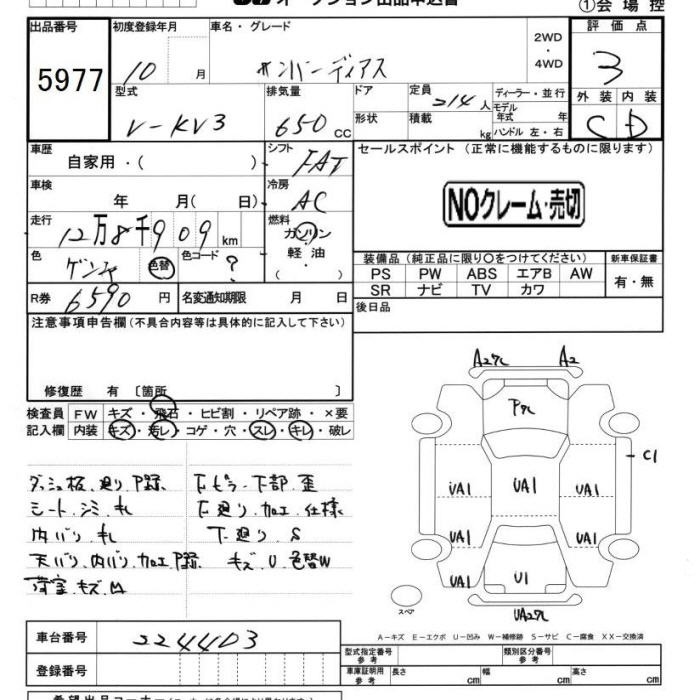 オークション出品申込書
①会場控
出品番号
初度登録年月
車名・グレード
2WD
・
4WD
評価点
5977
10 月
サンバーディアス
3
型式
排気量
ドア
定員 2/4人
ディーラー・並行
モデル年式 年
外装 内装
V-KV3
650 cc
形状
積載 kg
ハンドル 左・右
C D
車歴
自家用・( )
シフト
FAT
セールスポイント (正常に機能するものに限ります)
車検
年 月( 日)
冷房
AC
NOクレーム・売切
走行
12万8千909km
燃料
ガソリン・軽油
( )
色
色替
色コード
?
装備品 (純正品に限り○をつけてください)
新車保証書
PS PW ABS エアB AW
有・無
SR ナビ TV カワ
R券 6590円
名変通知期限 月 日
後日品
注意事項申告欄(不具合内容等は具体的に記入して下さい)
修復歴 有 〔箇所 〕
検査員記入欄
FW キズ・飛石・ヒビ割・リペア跡・×要
内装 キズ・汚レ・コゲ・穴・スレ・キレ・破レ
シート.シミ.キレ
内バリ.キレ
荷室.キズ.M
下廻り.S
キズ.U.色替W
A2
C1
UA1
UA1
UA1
UA1
UA1
UA1
U1
スペア
A－キズ E－エクボ U－凹み W－補修跡 S－サビ C－腐食 XX－交換済
車台番号
224403
登録番号
型式指定番号 参考
類別区分番号 参考
車庫証明用 参考
長さ cm
幅 cm
高さ cm